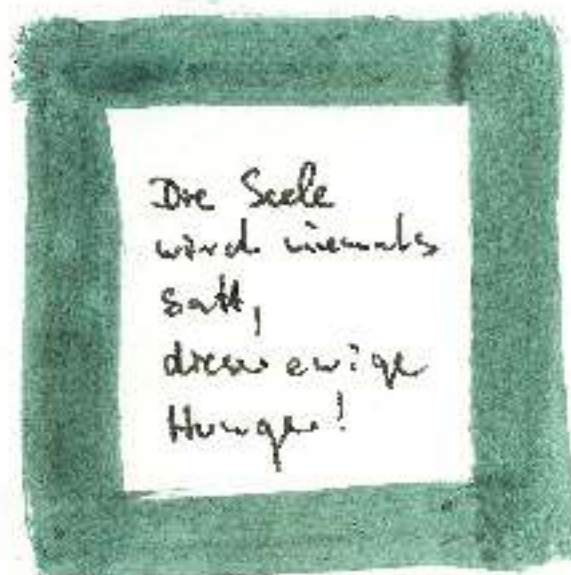 Die Seele
wird niemals
satt,
dieser ewige
Hunger!